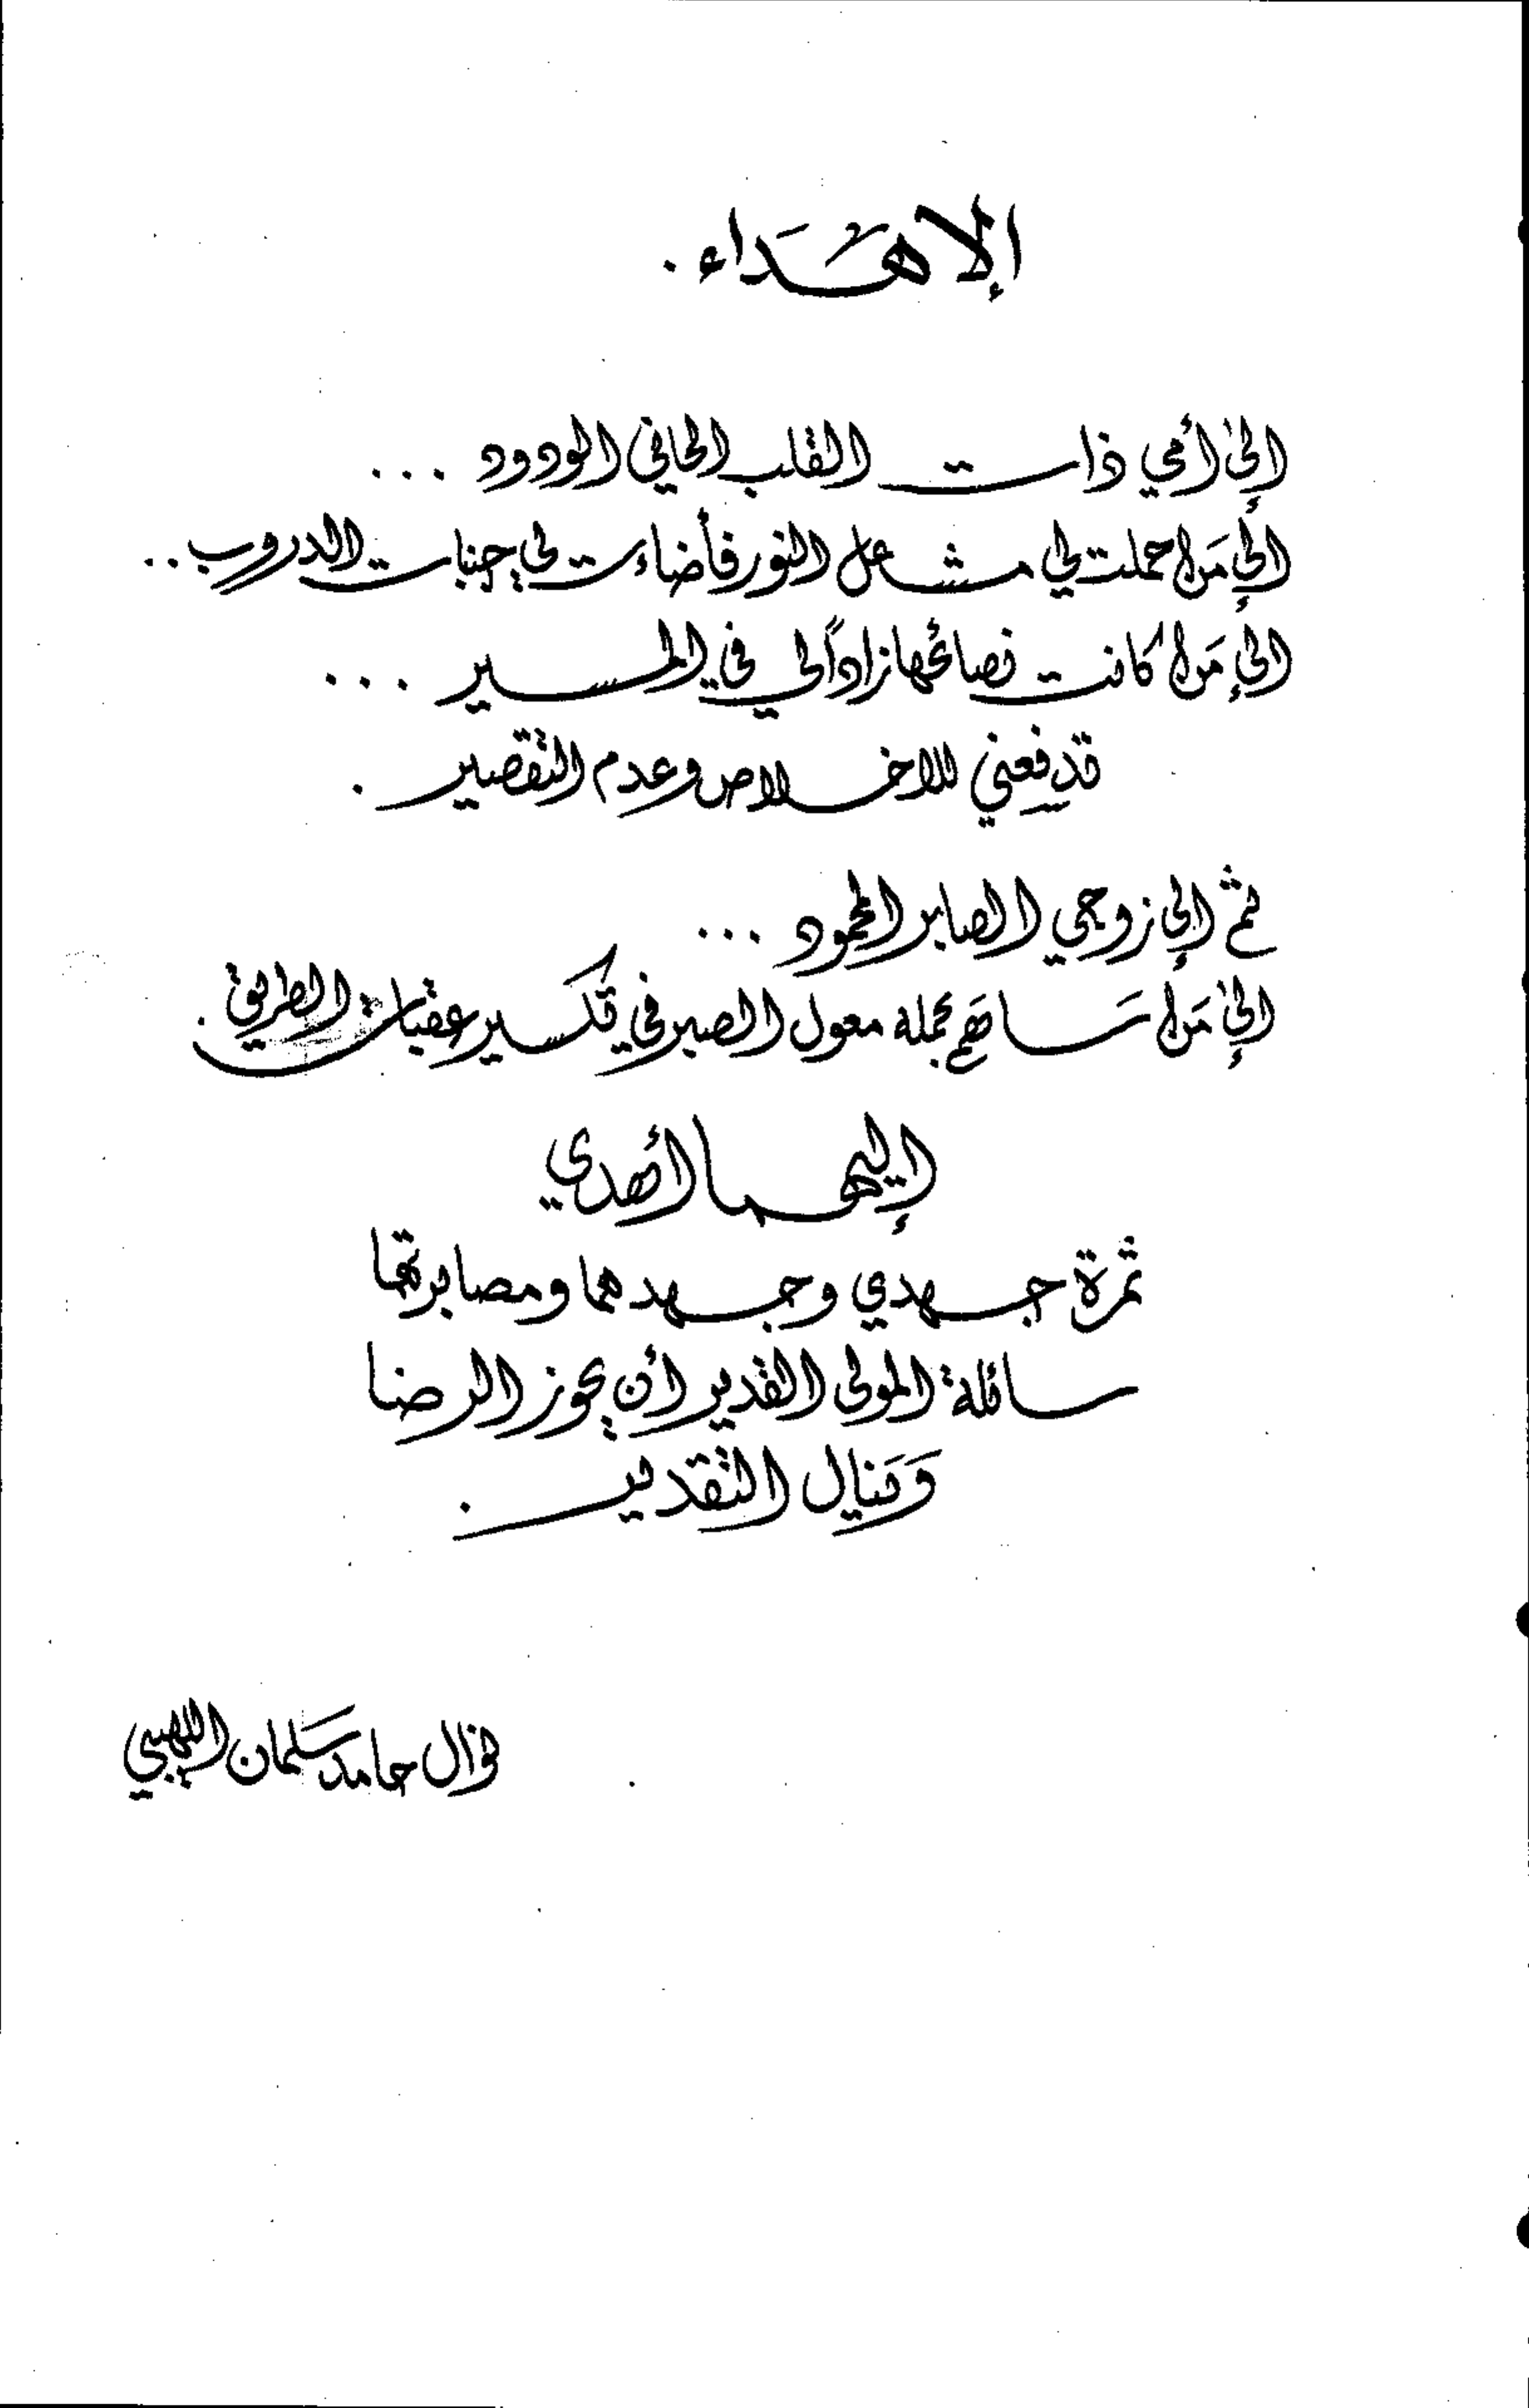 الإهَداء .
إلى أمي ذات القلب الحاني الودود ...
إلى مَن حملت لي مشاعل النور فأضاءت لي جنبات الدروب ..
إلى مَن كانت نصائحها زاداً لي في المسير ...
تدفعني للاخلاص وعدم التقصير .
ثم إلى زوجي الصابر المحمود ...
إلى مَن سَاهَم بحمله معول الصبر في تكسير عقبات الطريق .
إليهما أهدي
ثمرة جهدي وجهدهما ومصابرتهما
سائلة المولى القدير أن يحوز الرضا
وَيَنال التقدير .
نوال حامد سَلمان اللهيبي